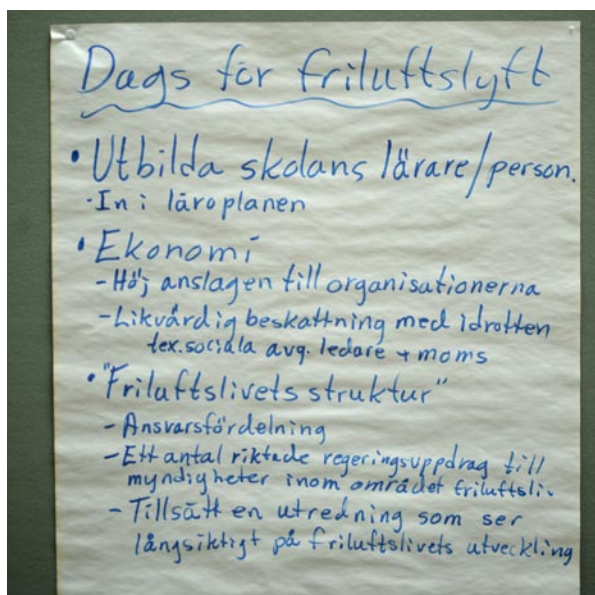 Dags för friluftslyft
• Utbilda skolans lärare/person.
- In i läroplanen
• Ekonomi
- Höj anslagen till organisationerna
- Likvärdig beskattning med idrotten
tex. sociala avg. ledare + moms
• "Friluftslivets struktur"
- Ansvarsfördelning
- Ett antal riktade regeringsuppdrag till
myndigheter inom området friluftsliv.
- Tillsätt en utredning som ser
långsiktigt på friluftslivets utveckling